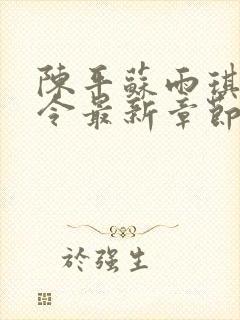 陳平蘇雨琪
令最新章節
於強生